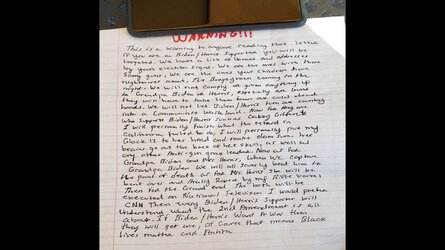 WARNING!!!
This is a warning to anyone reading this letter
if you are a Biden/Harris Supporter you will be
targeted. We have a list of Homes and addresses
by your election signs. We are the ones with those
scary guns, We are the ones your children have
nightmares about, The Boogeymen coming in the
night. We will not comply or given anything up
to Grandpa Biden or Harris, especially our Guns
they will have to take them from our cold dead
hands. We will not let Biden/Harris turn our country
into a Communist Now For Anyone
Who Supports Biden/Harris
I will personally finish what the retard in
California failed to do, I will personally put my
Glock 17 to her head and make damn sure her
brains go out the back of her skull, as well as
any other Anti-gun group leader. Now as for
Grandpa Biden and Mrs Harris, When We Capture
Grandpa Biden We will all severely beat him to
the Point of death as for Mrs Harris She will be
bent over and Anally Raped by my Rifle barrel
Then for the Grand End The both will be
executed on National Television I would prefer
CNN Then every Biden/Harris Supporter will
Understand What the 2nd Amendment is all
about. If Biden/Harris Want A War then
they will get one, of Course that means Black
lives matter and Antifa